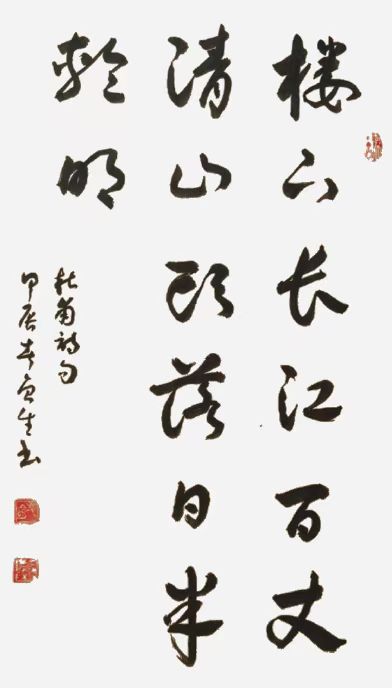 楼下长江百丈
清山头落日半
轮明
杜甫诗句
甲辰春生书